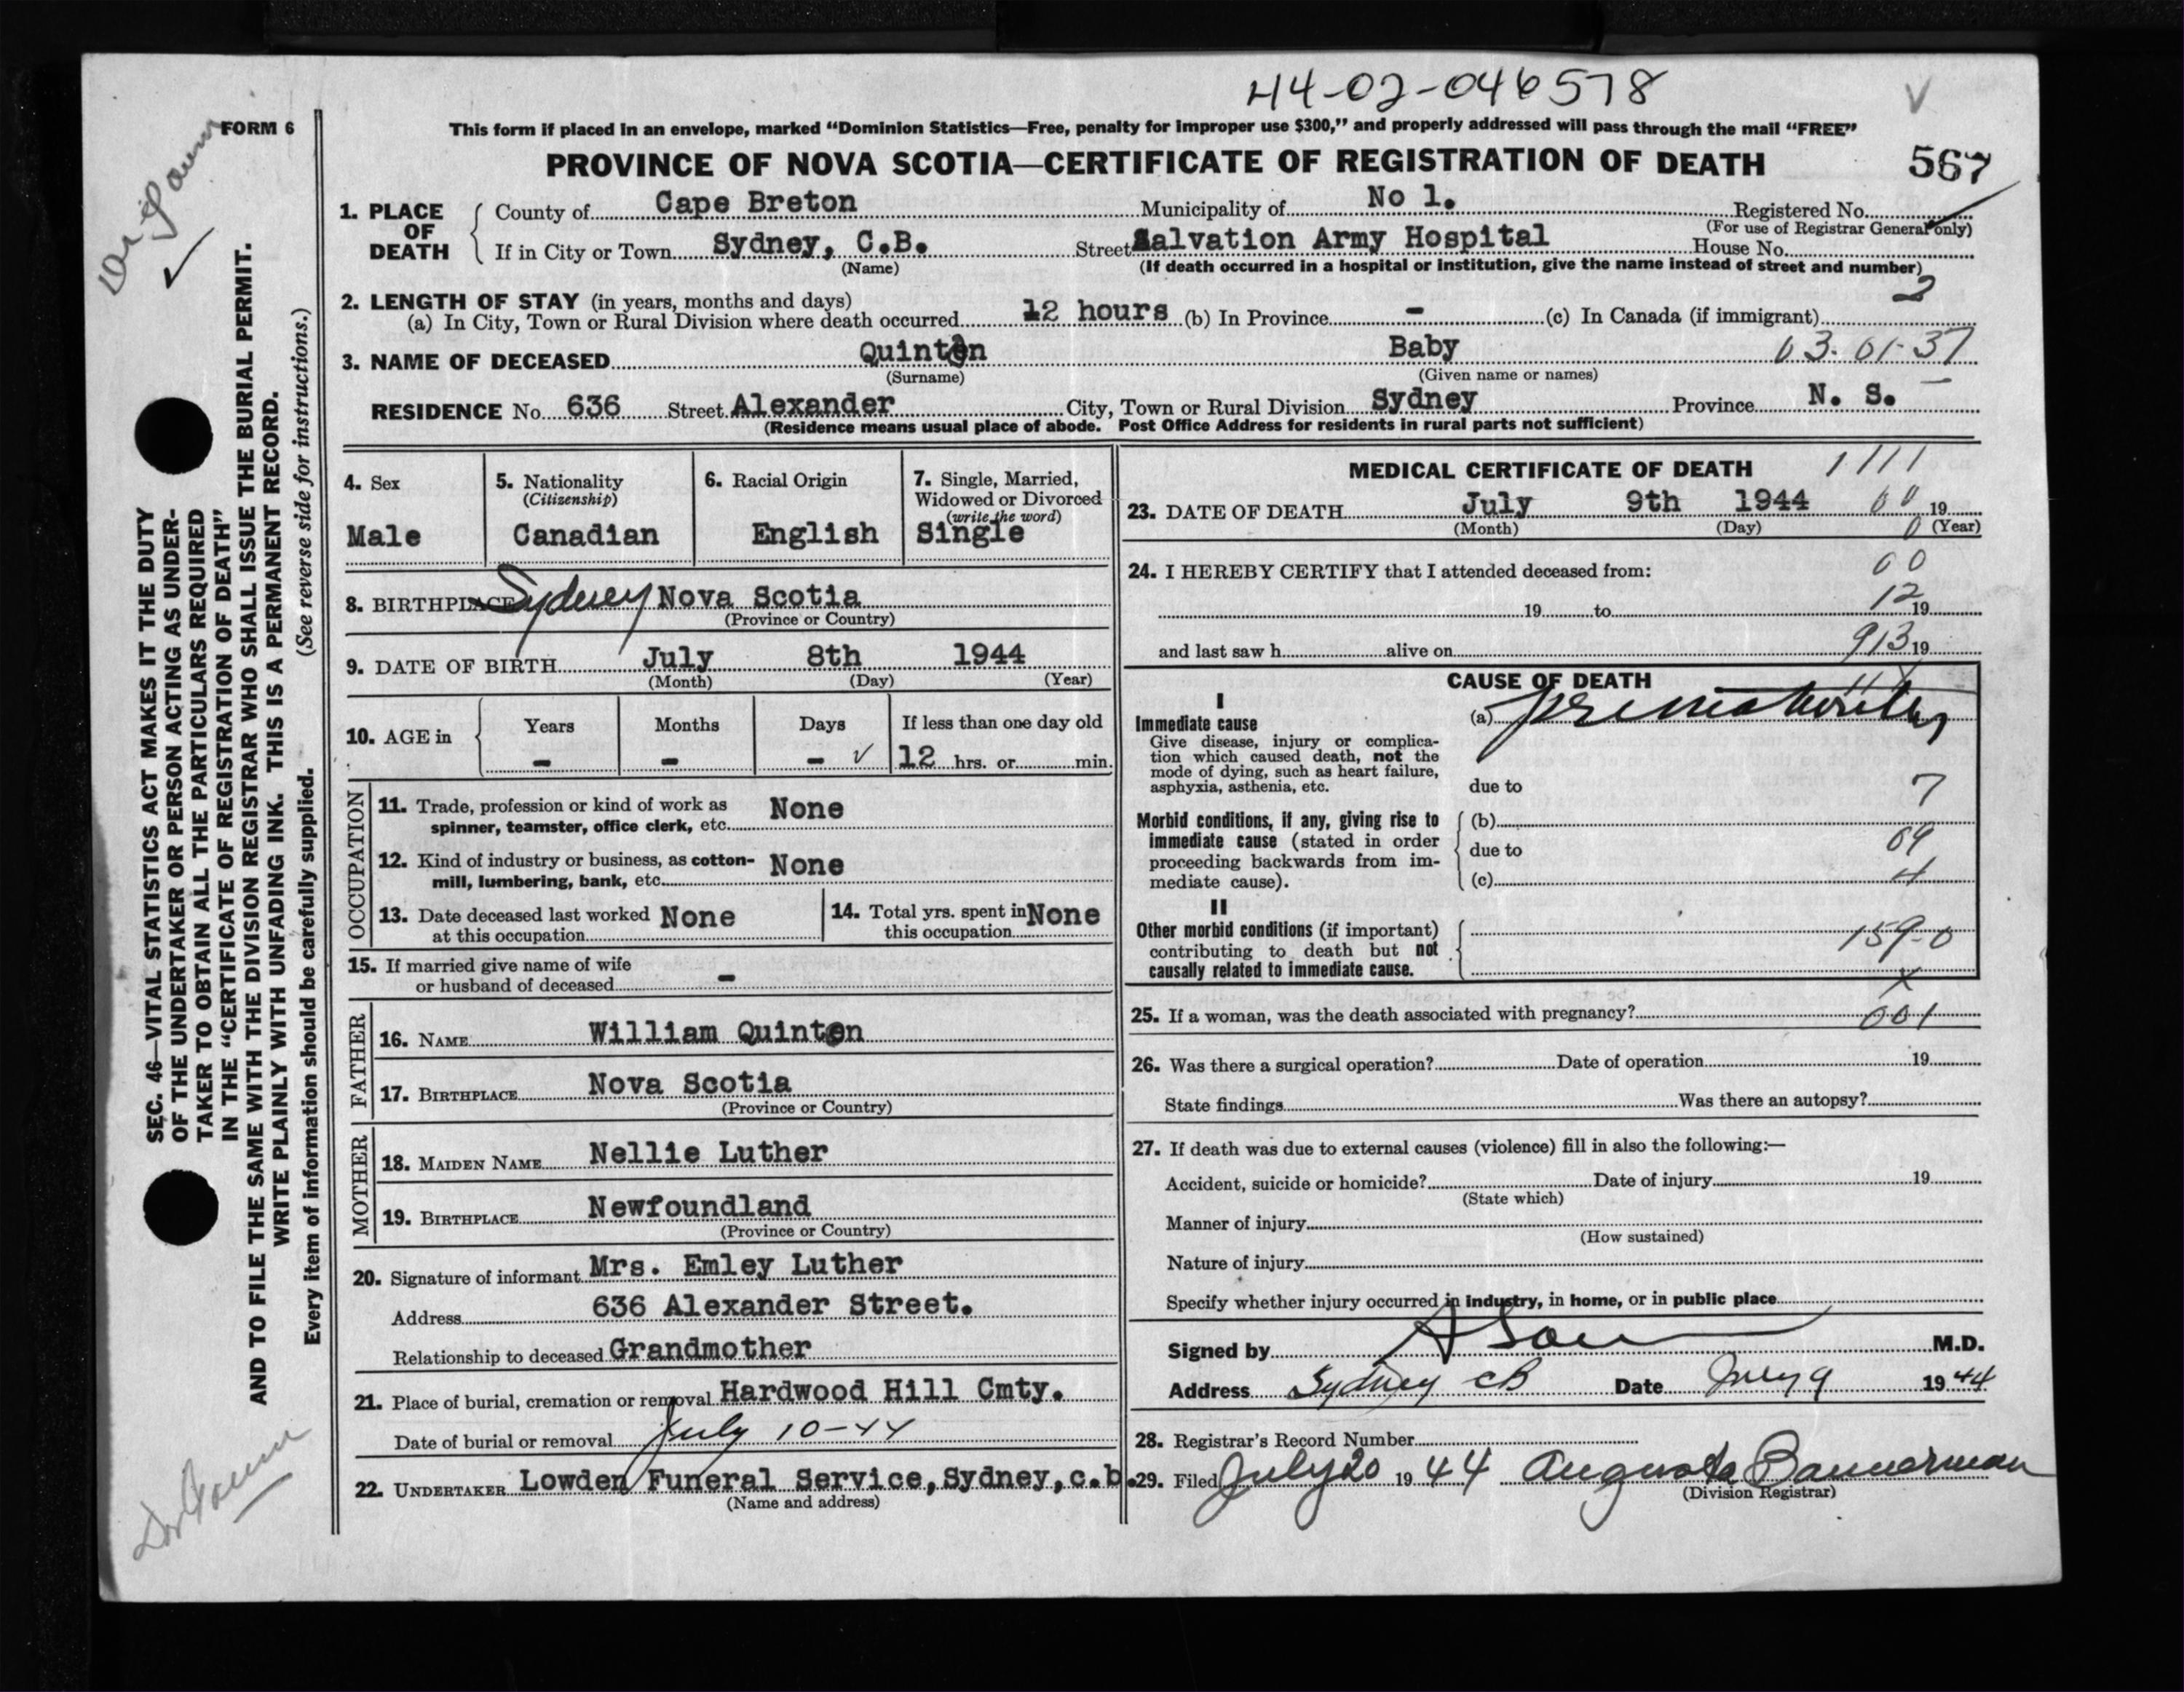 44-02-046578
FORM 6
This form if placed in an envelope, marked “Dominion Statistics—Free, penalty for improper use $300,” and properly addressed will pass through the mail “FREE”
PROVINCE OF NOVA SCOTIA—CERTIFICATE OF REGISTRATION OF DEATH 567
1. PLACE OF DEATH County of Cape Breton Municipality of No 1. Registered No.
(For use of Registrar General only)
If in City or Town Sydney, C.B. Street Salvation Army Hospital House No.
(Name) (If death occurred in a hospital or institution, give the name instead of street and number)
2. LENGTH OF STAY (in years, months and days) 2
(a) In City, Town or Rural Division where death occurred 12 hours (b) In Province - (c) In Canada (if immigrant)
3. NAME OF DECEASED Quinton Baby 03-01-37
(Surname) (Given name or names)
RESIDENCE No. 636 Street Alexander City, Town or Rural Division Sydney Province N. S.
(Residence means usual place of abode. Post Office Address for residents in rural parts not sufficient)
4. Sex Male
5. Nationality (Citizenship) Canadian
6. Racial Origin English
7. Single, Married, Widowed or Divorced (write the word) Single
8. BIRTHPLACE Sydney Nova Scotia
(Province or Country)
9. DATE OF BIRTH July 8th 1944
(Month) (Day) (Year)
10. AGE in Years Months Days If less than one day old
- - - ✓ 12 hrs. or min.
OCCUPATION
11. Trade, profession or kind of work as None
spinner, teamster, office clerk, etc.
12. Kind of industry or business, as cotton- None
mill, lumbering, bank, etc.
13. Date deceased last worked None
at this occupation
14. Total yrs. spent in None
this occupation
15. If married give name of wife
or husband of deceased -
FATHER
16. NAME William Quinton
17. BIRTHPLACE Nova Scotia
(Province or Country)
MOTHER
18. MAIDEN NAME Nellie Luther
19. BIRTHPLACE Newfoundland
(Province or Country)
20. Signature of informant Mrs. Emley Luther
Address 636 Alexander Street.
Relationship to deceased Grandmother
21. Place of burial, cremation or removal Hardwood Hill Cmty.
Date of burial or removal July 10-44
22. UNDERTAKER Lowden Funeral Service, Sydney, c.b.
(Name and address)
MEDICAL CERTIFICATE OF DEATH 1111
23. DATE OF DEATH July 9th 1944 00 19
(Month) (Day) 0 (Year)
24. I HEREBY CERTIFY that I attended deceased from: 00
19 to 12 19
and last saw h alive on 913 19
CAUSE OF DEATH
I
Immediate cause
Give disease, injury or complica-
tion which caused death, not the
mode of dying, such as heart failure,
asphyxia, asthenia, etc.
(a) prematurity
due to 7
Morbid conditions, if any, giving rise to
immediate cause (stated in order
proceeding backwards from im-
mediate cause).
(b)
due to 09
(c) 4
II
Other morbid conditions (if important)
contributing to death but not
causally related to immediate cause.
159-0
x
25. If a woman, was the death associated with pregnancy? 001
26. Was there a surgical operation? Date of operation 19
State findings Was there an autopsy?
27. If death was due to external causes (violence) fill in also the following:—
Accident, suicide or homicide? Date of injury 19
(State which)
Manner of injury
(How sustained)
Nature of injury
Specify whether injury occurred in industry, in home, or in public place
Signed by M.D.
Address Sydney CB Date July 9 1944
28. Registrar's Record Number
29. Filed July 20 1944 Augusta Bannerman
(Division Registrar)
SEC. 46—VITAL STATISTICS ACT MAKES IT THE DUTY
OF THE UNDERTAKER OR PERSON ACTING AS UNDER-
TAKER TO OBTAIN ALL THE PARTICULARS REQUIRED
IN THE “CERTIFICATE OF REGISTRATION OF DEATH”
AND TO FILE THE SAME WITH THE DIVISION REGISTRAR WHO SHALL ISSUE THE BURIAL PERMIT.
WRITE PLAINLY WITH UNFADING INK. THIS IS A PERMANENT RECORD.
Every item of information should be carefully supplied. (See reverse side for instructions.)